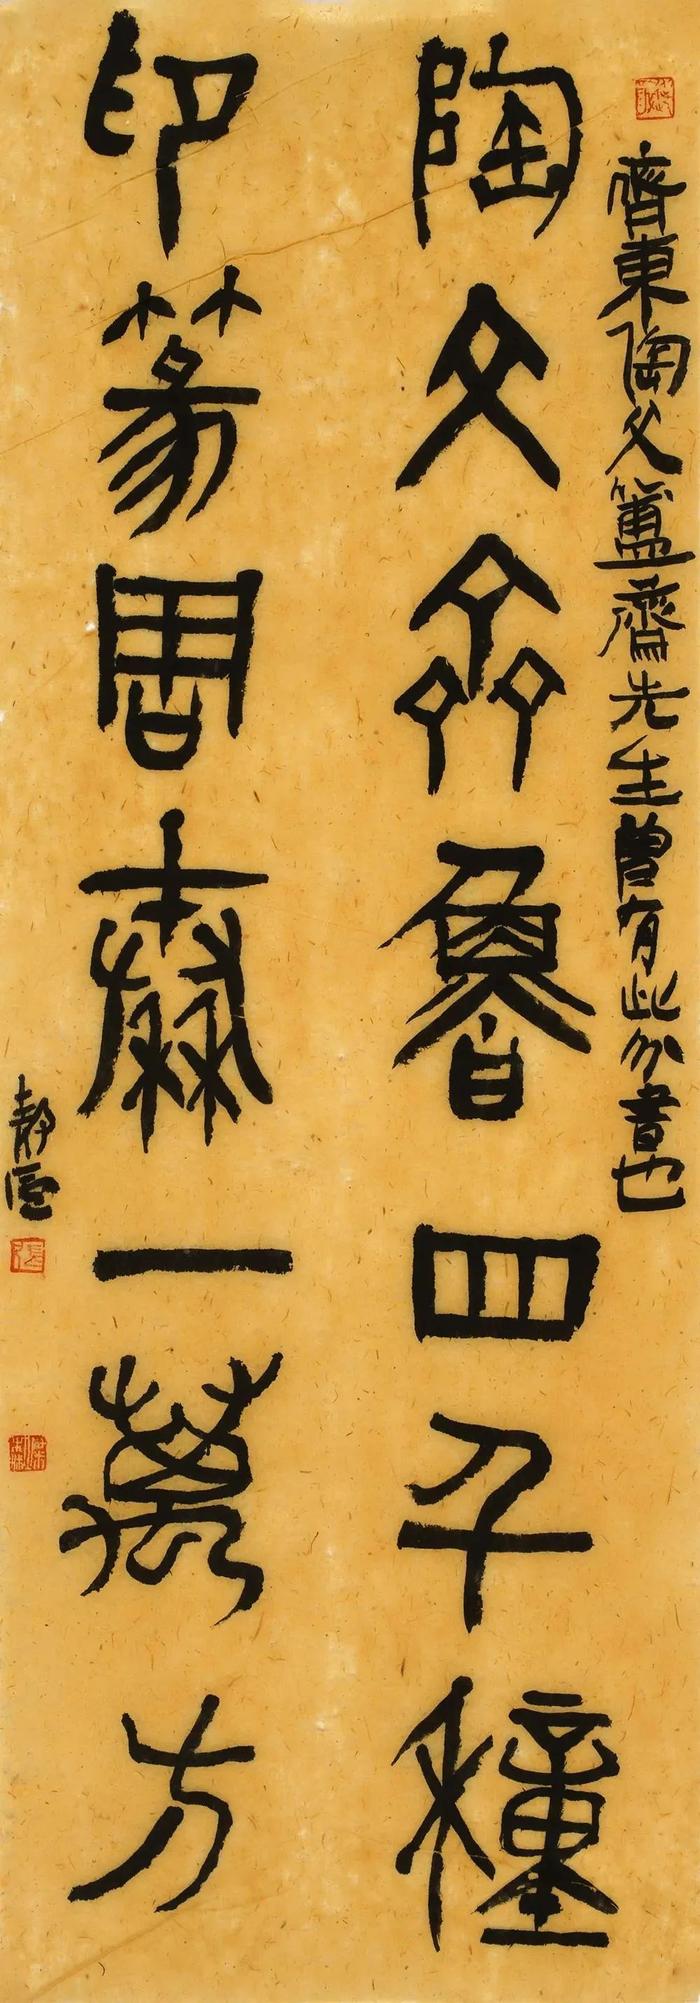 齊東陶父簠齋先生曾有此分書也
陶文齊魯四千種
印篆周秦一萬方
靜